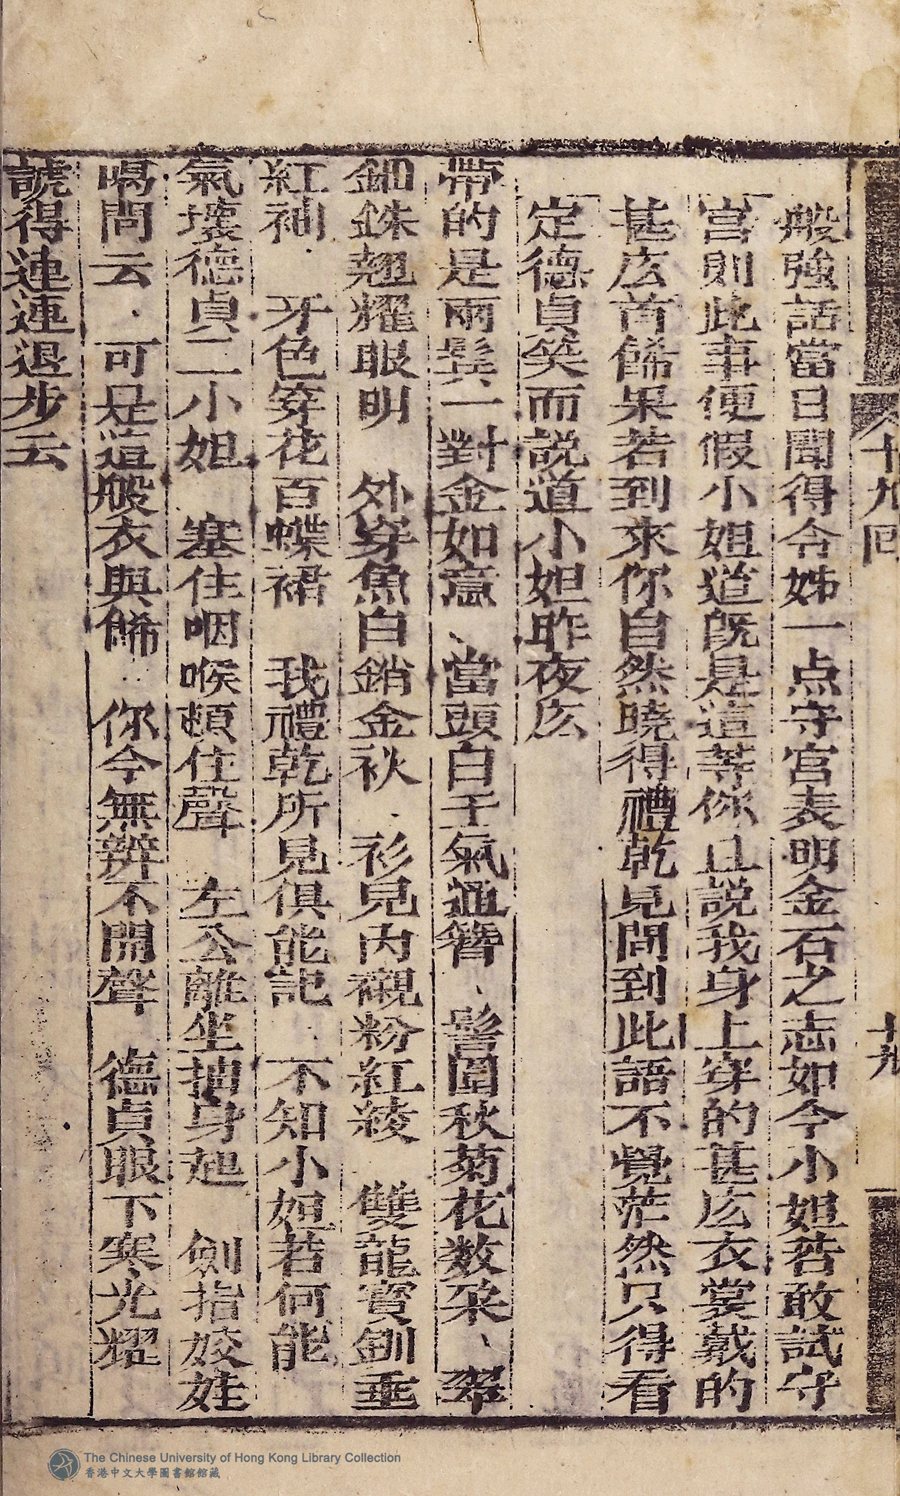 十九回
十九
般強話當日聞得令姊一点守宫表明金石之志如今小姐若敢試守
宫則此事便假小姐道既是這等你且説我身上穿的甚庅衣裳戴的
甚庅首餙果若到來你自然曉得禮乾見問到此語不覺茫然只得看
定德貞笑而説道小姐昨夜庅
帶的是兩髩一對金如意、當頭白玉氣通簪、髻圍秋菊花数朶、翠
鈿銖翹耀眼明 外穿魚白銷金秋 衫見内襯粉紅綾 雙龍寳釧垂
紅袖 牙色穿花百蝶裙 我禮乾所見俱能記 不知小姐若何能
氣壞德貞二小姐 塞住咽喉頓住聲 左公離坐抽身起 劍指姣娃
喝問云 可是這般衣與餙 你今無辨不開聲 德貞眼下寒光耀
諕得連連退步云
The Chinese University of Hong Kong Library Collection
香港中文大學圖書館館藏